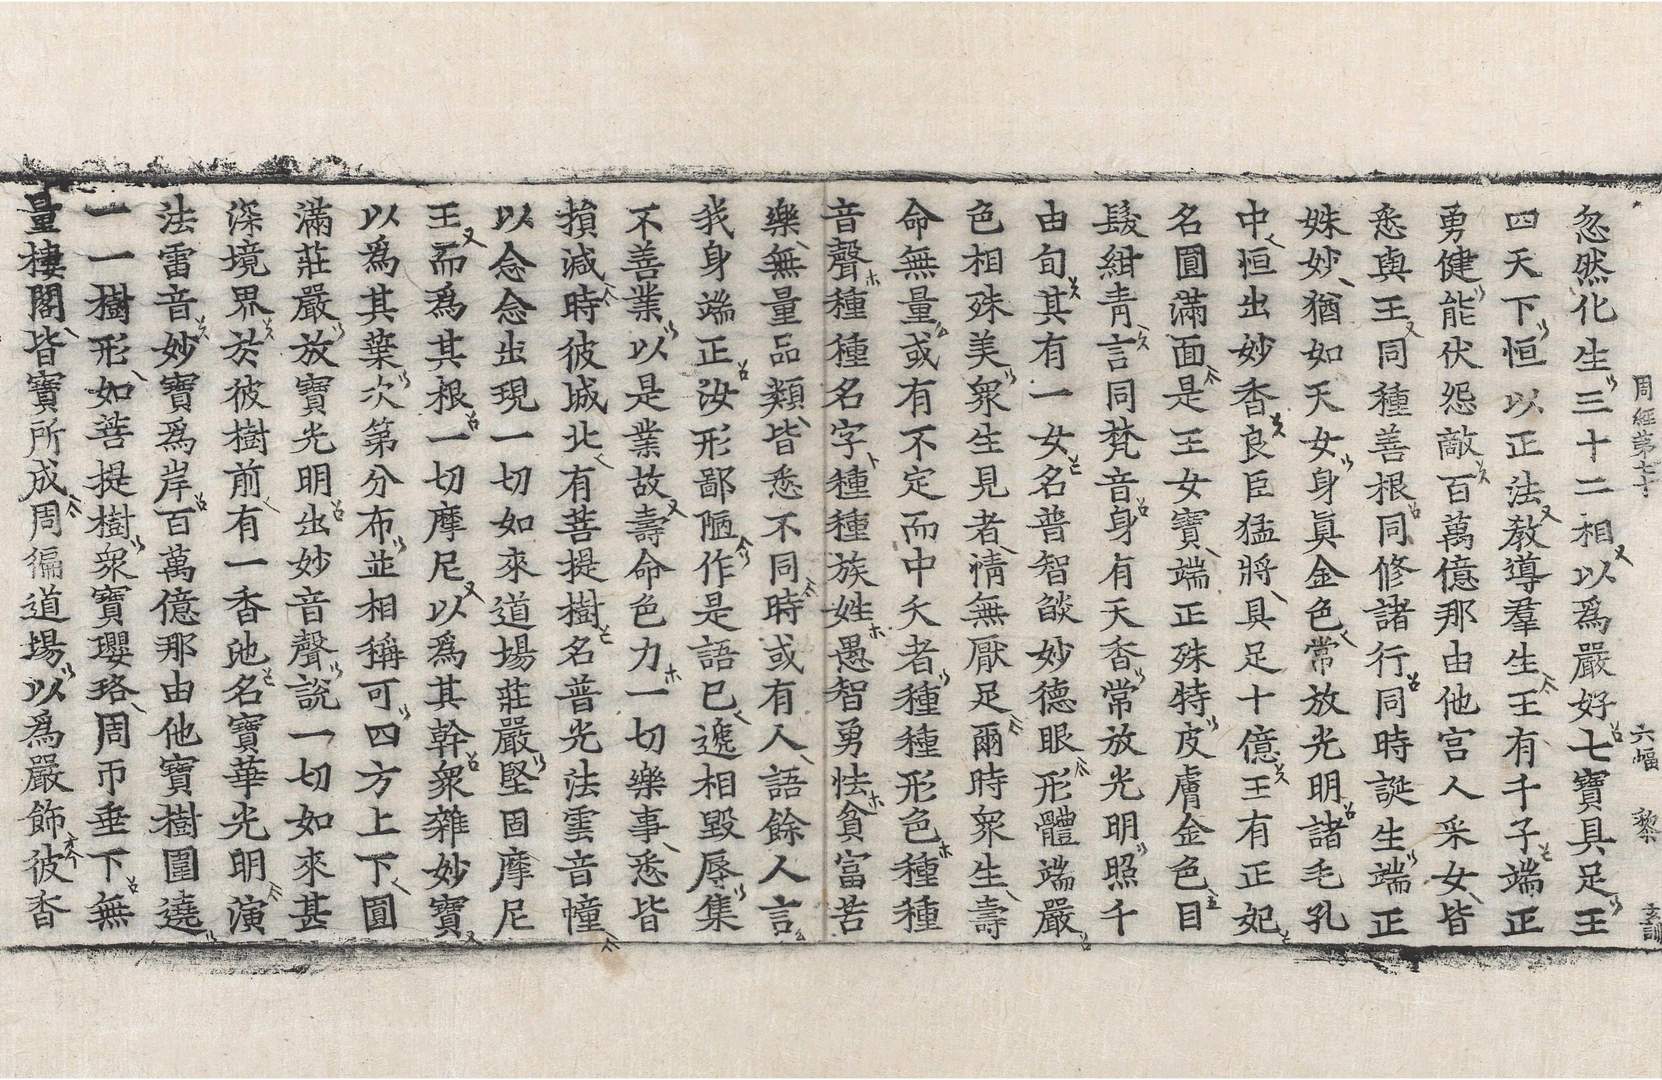 周經第七十 六幅 黎 玄訓
忽然化生三十二相以爲嚴好七寶具足王
四天下恒以正法敎導羣生王有千子端正
勇健能伏怨敵百萬億那由他宮人采女皆
悉與王同種善根同修諸行同時誕生端正
姝妙猶如天女身眞金色常放光明諸毛孔
中恒出妙香良臣猛將具足十億王有正妃
名圓滿面是王女寶端正殊特皮膚金色目
髮紺靑言同梵音身有天香常放光明照千
由旬其有一女名普智燄妙德眼形體端嚴
色相殊美衆生見者情無厭足爾時衆生壽
命無量或有不定而中夭者種種形色種種
音聲種種名字種種族姓愚智勇怯貧富苦
樂無量品類皆悉不同時或有人語餘人言
我身端正汝形鄙陋作是語已遞相毀辱集
不善業以是業故壽命色力一切樂事悉皆
損減時彼城北有菩提樹名普光法雲音幢
以念念出現一切如來道場莊嚴堅固摩尼
王而爲其根一切摩尼以爲其幹衆雜妙寶
以爲其葉次第分布並相稱可四方上下圓
滿莊嚴放寶光明出妙音聲說一切如來甚
深境界於彼樹前有一香池名寶華光明演
法雷音妙寶爲岸百萬億那由他寶樹圍遶
一一樹形如菩提樹衆寶瓔珞周帀垂下無
量樓閣皆寶所成周徧道場以爲嚴飾彼香